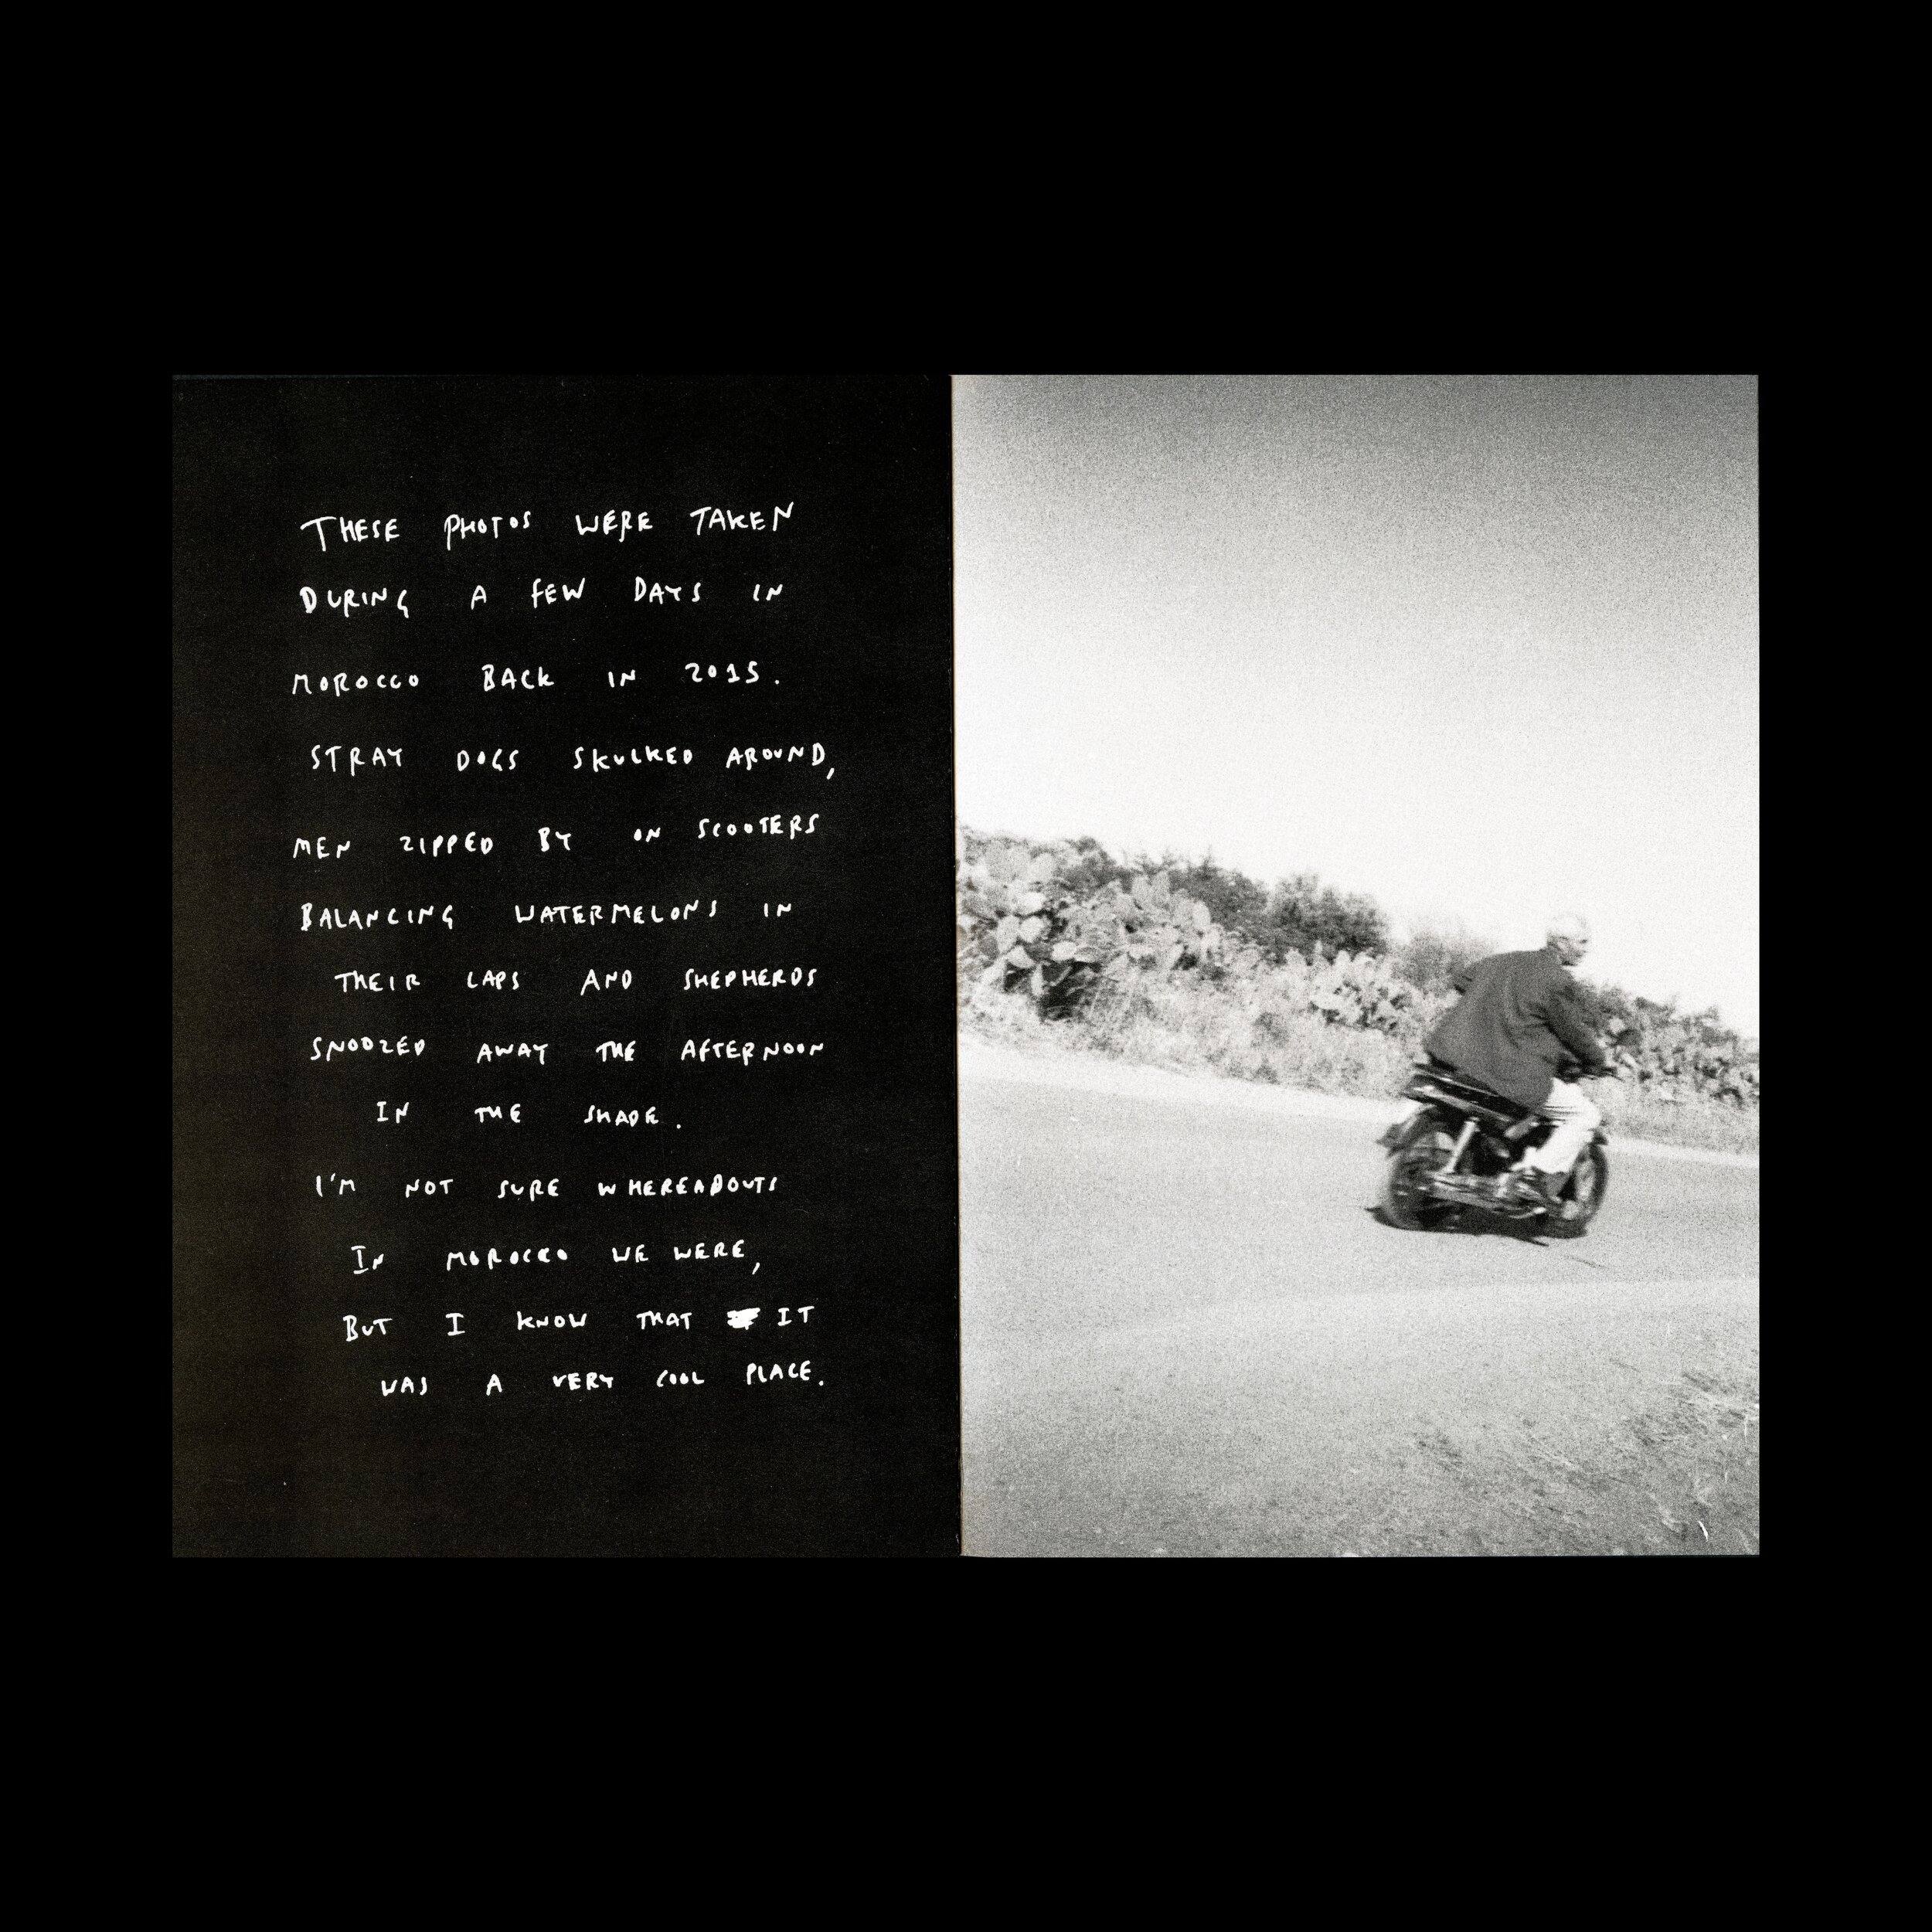 THESE PHOTOS WERE TAKEN
DURING A FEW DAYS IN
MOROCCO BACK IN 2015.
STRAY DOGS SKULKED AROUND,
MEN ZIPPED BY ON SCOOTERS
BALANCING WATERMELONS IN
THEIR LAPS AND SHEPHERDS
SNOOZED AWAY THE AFTERNOON
IN THE SHADE.
I'M NOT SURE WHEREABOUTS
IN MOROCCO WE WERE,
BUT I KNOW THAT IT
WAS A VERY COOL PLACE.